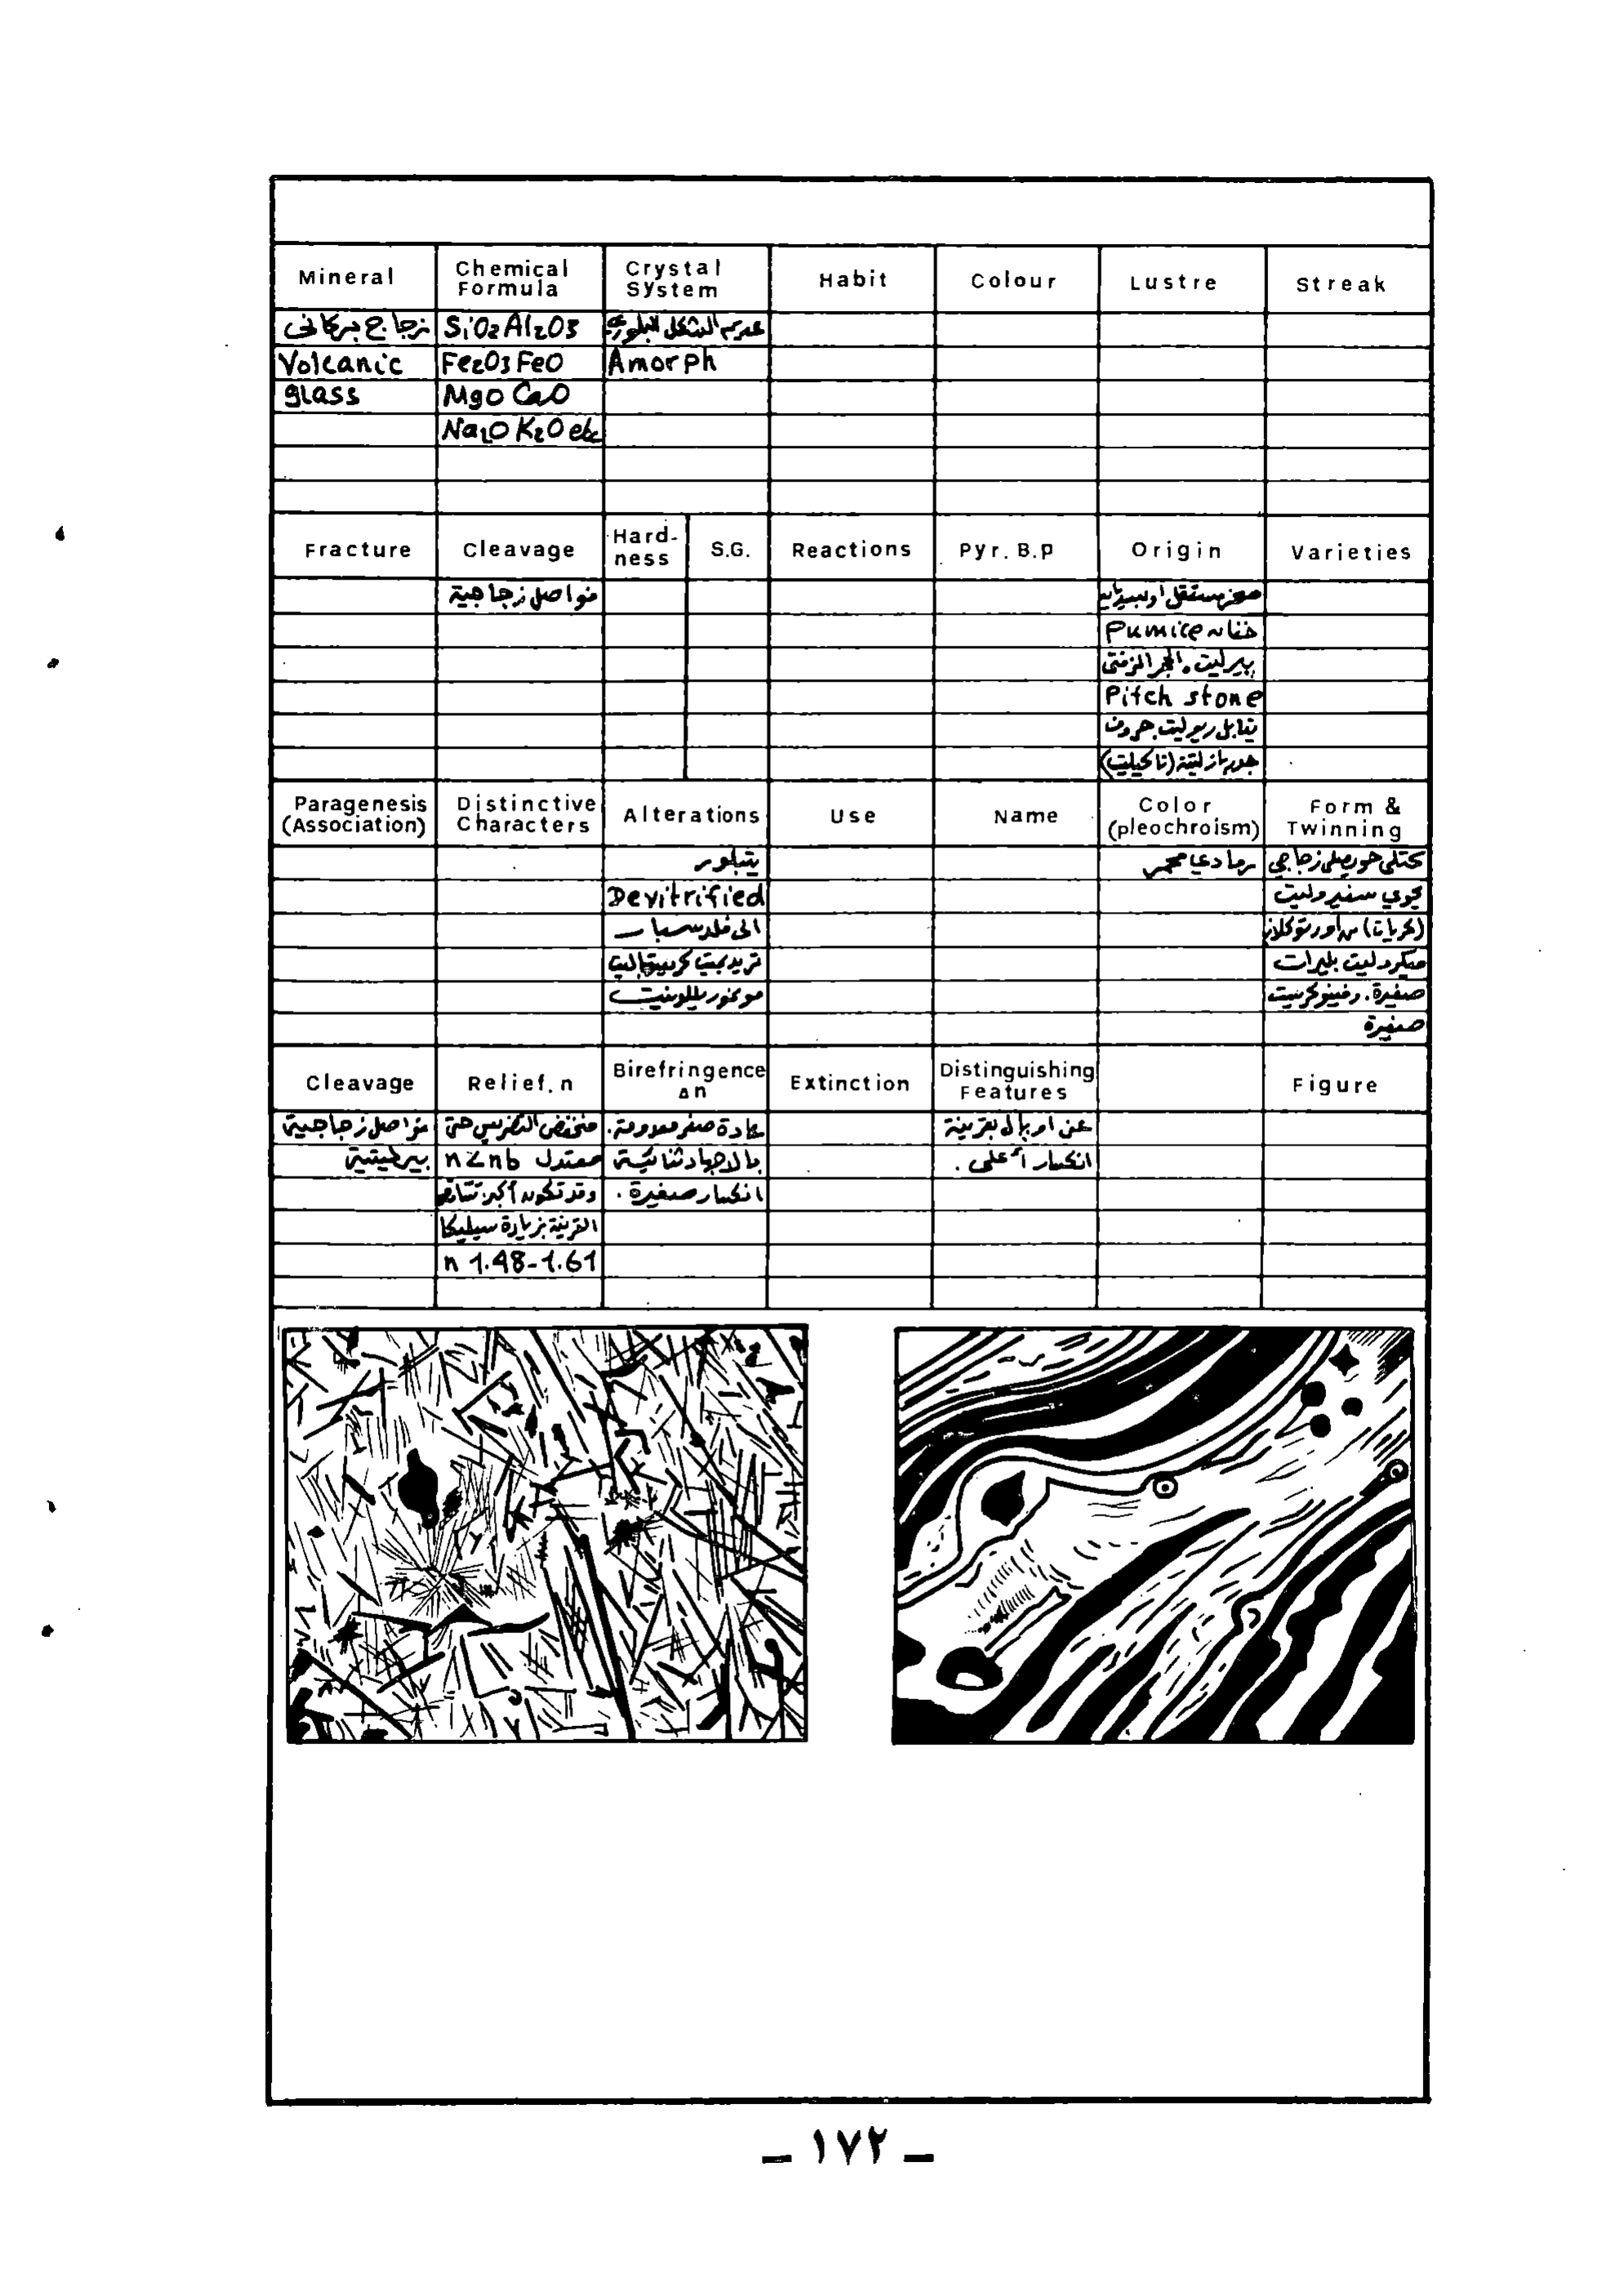 Mineral Chemical Formula Crystal System Habit Colour Lustre Streak
زجاج بركاني SiO2 Al2O3 عديم الشكل البلوري
Volcanic Fe2O3 FeO Amorph
glass MgO CaO
Na2O K2O etc
Fracture Cleavage Hard-ness S.G. Reactions Pyr. B.p Origin Varieties
فواصل زجاجية صخر مستقل
Pumice خفان
بيرليت. الحجر الزفتي
Pitch stone
يقابل ريوليت
(تاكيليت)
Paragenesis (Association) Distinctive Characters Alterations Use Name Color (pleochroism) Form & Twinning
يتبلور رمادي محمر كتلي حويصلي زجاجي
Devitrified يحوي سفيروليت
الى فلدسبار (كريات)
تريديميت كريستوباليت ميكروليت بلورات
مونموريللونيت صغيرة. وفينوكريست
صغيرة
Cleavage Relief. n Birefringence Δn Extinction Distinguishing Features Figure
فواصل زجاجية منخفض التضريس حتى عادة صفر معدومة. عن اوبال بقرينة
بيرليتية معتدل n<nb بالاجهاد ثنائية انكسار أعلى.
وقد تكون أكبر انكسار صغيرة.
القرينة بزيادة سيليكا
n 1.48-1.61
_ ١٧٢ _